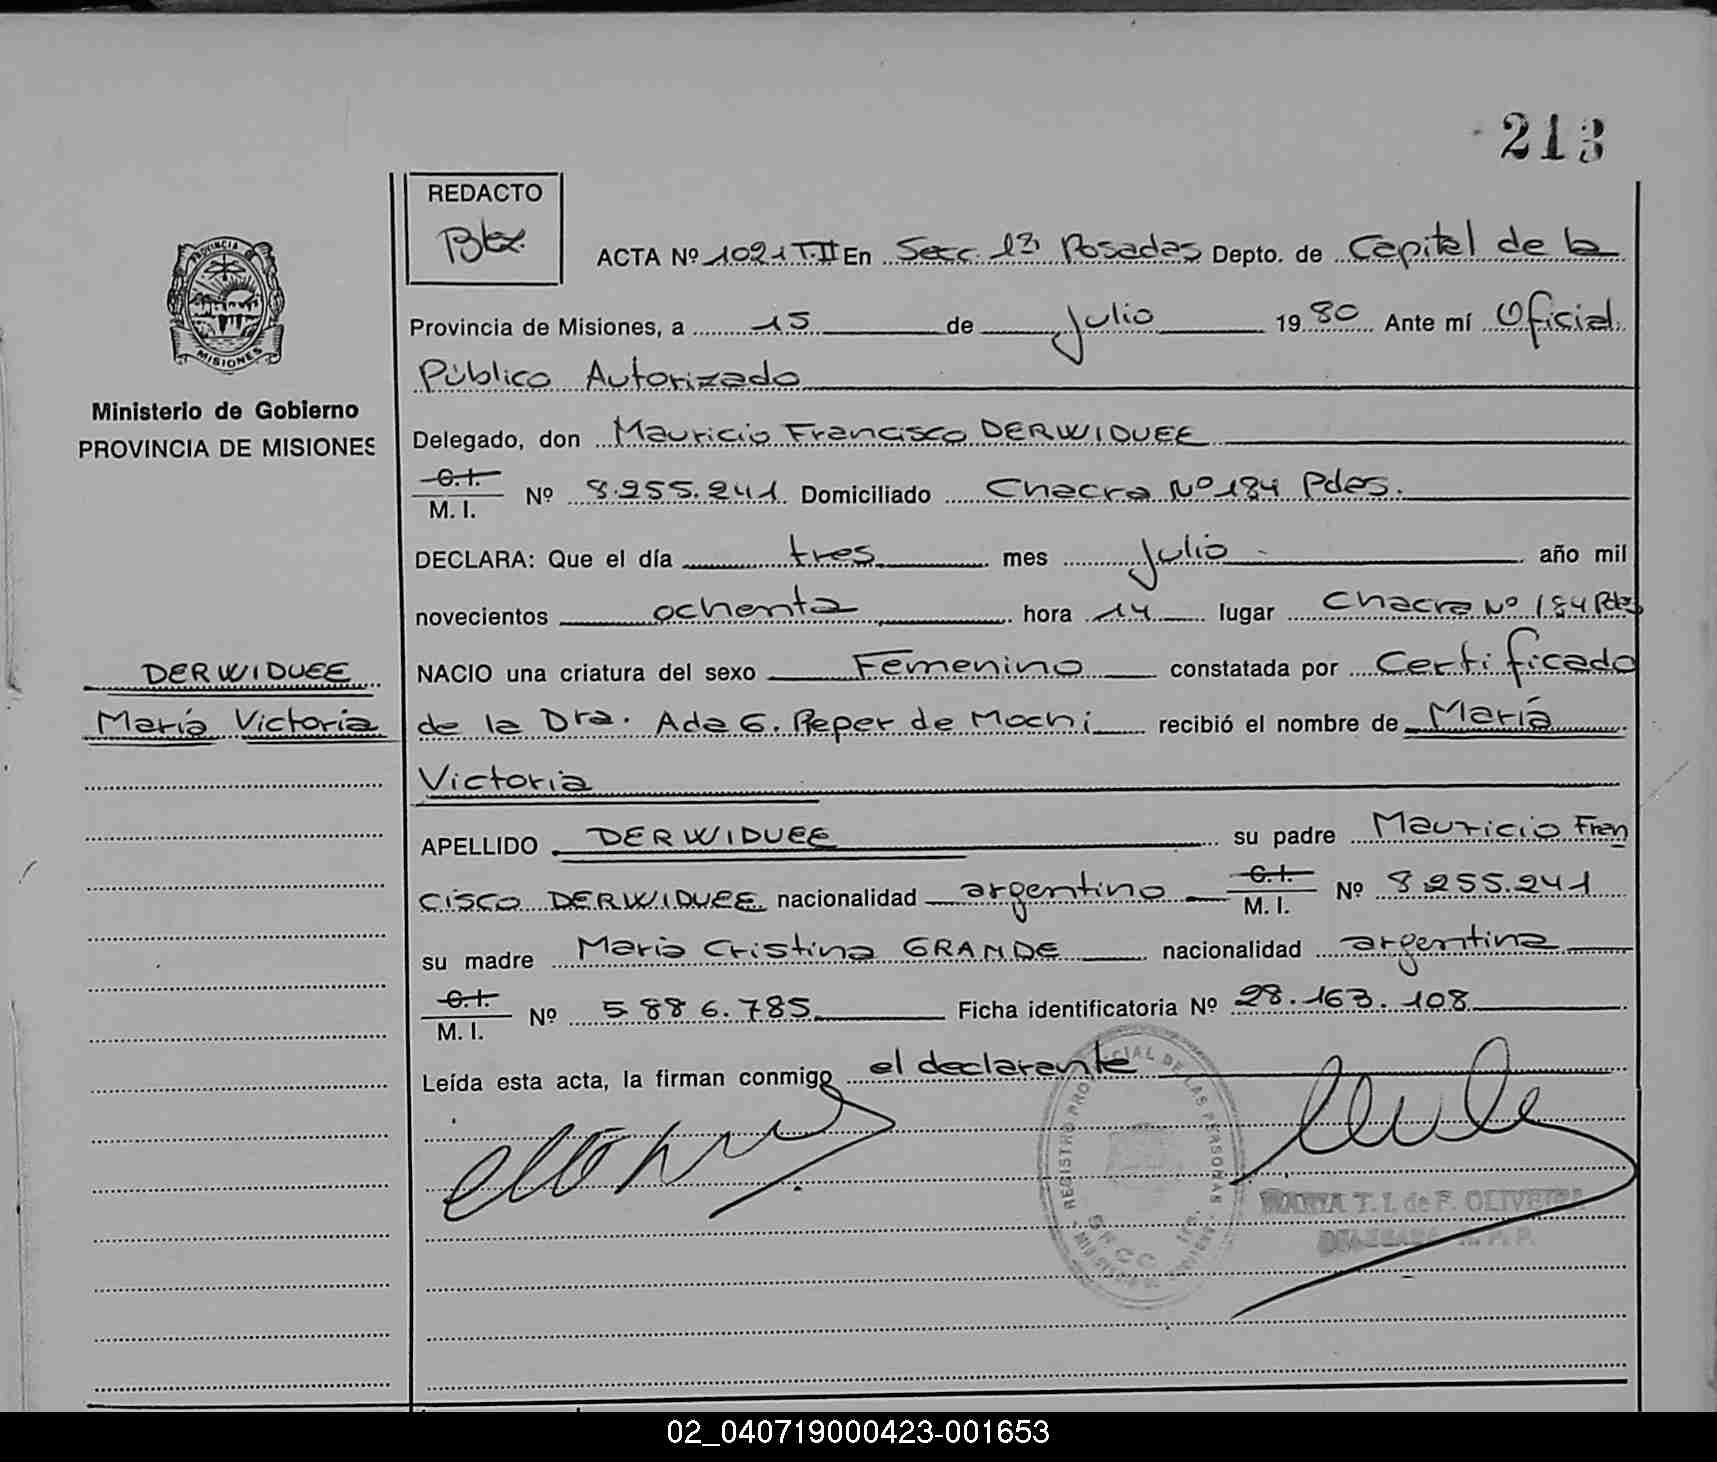 213
REDACTO
ACTA Nº 1021 T.II En Secc. 1ª Posadas Depto. de Capital de la
Provincia de Misiones, a 15 de Julio 1980 Ante mí Oficial
Público Autorizado
PROVINCIA
MISIONES
Ministerio de Gobierno
PROVINCIA DE MISIONES
Delegado, don Mauricio Francisco DERWIDUEE
C.I.
M.I. Nº 8.255.241 Domiciliado Chacra Nº 184 Pdas.
DECLARA: Que el día tres mes Julio año mil
novecientos ochenta hora 14 lugar Chacra Nº 184 Pdas
DERWIDUEE
María Victoria
NACIO una criatura del sexo Femenino constatada por Certificado
de la Dra. Ada G. Peper de Mochi recibió el nombre de María
Victoria
APELLIDO DERWIDUEE su padre Mauricio Fran
cisco DERWIDUEE nacionalidad argentino C.I.
M.I. Nº 8.255.241
su madre María Cristina GRANDE nacionalidad argentina
C.I.
M.I. Nº 5886.785 Ficha identificatoria Nº 28.163.108
Leída esta acta, la firman conmigo el declarante
REGISTRO PROVINCIAL DE LAS PERSONAS
SECC
MARIA T. I. de F. OLIVEIRA
02_040719000423-001653